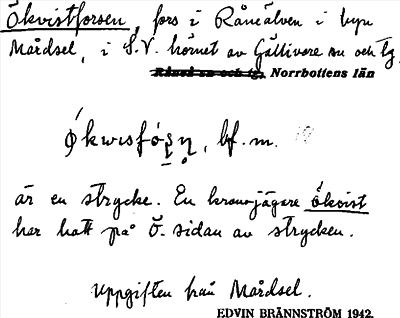 Ökvistforsen, fors i Råneälven i byn
Mårdsel, i S.V. hörnet av Gällivare sn och tg,
Råneå sn och tg. Norrbottens län
Ǿkwɩsfó̱ʂn̥, bf. m.
är en strycke. En kronojägare ökvist
har haft på Ö. sidan av strycken.
Uppgiften från Mårdsel.
EDVIN BRÄNNSTRÖM 1942.